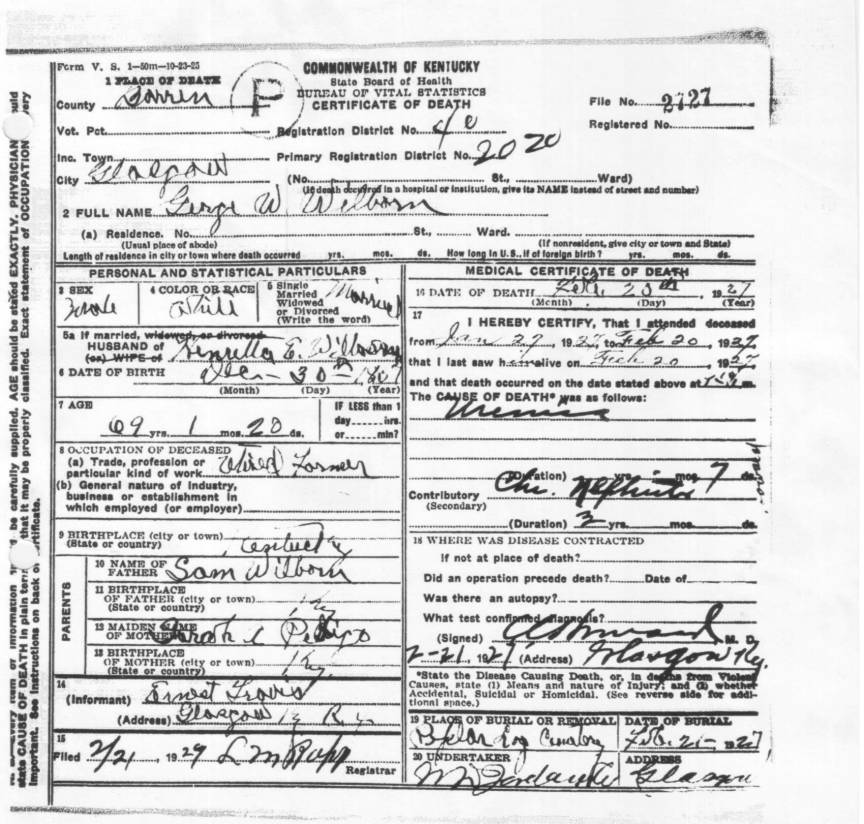 Form V. S. 1-50m-10-23-25
COMMONWEALTH OF KENTUCKY
State Board of Health
BUREAU OF VITAL STATISTICS
CERTIFICATE OF DEATH
1 PLACE OF DEATH
County Barren
P
File No. 2727
Registered No.
Vot. Pct.
Registration District No.
Inc. Town
Primary Registration District No. 2020
City Glasgow
(No. St., Ward)
(If death occurred in a hospital or institution, give its NAME instead of street and number)
2 FULL NAME George W Wilborn
(a) Residence. No. St., Ward.
(Usual place of abode) (If nonresident, give city or town and State)
Length of residence in city or town where death occurred yrs. mos. ds. How long in U.S., if of foreign birth? yrs. mos. ds.
PERSONAL AND STATISTICAL PARTICULARS
3 SEX
Male
4 COLOR OR RACE
White
5 Single
Married
Widowed
or Divorced
(Write the word)
Married
5a If married, widowed, or divorced
HUSBAND of
(or) WIFE of
E Wilborn
6 DATE OF BIRTH
Dec 30th
(Month) (Day) (Year)
7 AGE
69 yrs. 1 mos. 20 ds.
IF LESS than 1
day hrs.
or min?
8 OCCUPATION OF DECEASED
(a) Trade, profession or
particular kind of work Retired Farmer
(b) General nature of industry,
business or establishment in
which employed (or employer)
9 BIRTHPLACE (city or town)
(State or country) Kentucky
PARENTS
10 NAME OF
FATHER Sam Wilborn
11 BIRTHPLACE
OF FATHER (city or town)
(State or country) Ky
12 MAIDEN NAME
OF MOTHER Sarah Pedigo
13 BIRTHPLACE
OF MOTHER (city or town)
(State or country) Ky.
14
(Informant) Ernest Travis
(Address) Glasgow Ky
15
Filed 2/21, 19
Registrar
MEDICAL CERTIFICATE OF DEATH
16 DATE OF DEATH Feb 20th, 1927
(Month) (Day) (Year)
17
I HEREBY CERTIFY, That I attended deceased
from Jan 27, 1927, to Feb 20, 1927
that I last saw h alive on Feb 20, 1927
and that death occurred on the date stated above at m.
The CAUSE OF DEATH* was as follows:
Uremia
(Duration) yrs. mos. 7 ds.
Contributory Chr. Nephritis
(Secondary)
(Duration) 2 yrs. mos. ds.
18 WHERE WAS DISEASE CONTRACTED
If not at place of death?
Did an operation precede death? Date of
Was there an autopsy?
What test confirmed diagnosis?
(Signed) M. D.
2-21, 1927 (Address) Glasgow Ky.
*State the Disease Causing Death, or, in deaths from Violent
Causes, state (1) Means and nature of Injury; and (2) whether
Accidental, Suicidal or Homicidal. (See reverse side for addi-
tional space.)
19 PLACE OF BURIAL OR REMOVAL
Poplar Log Cemetery
DATE OF BURIAL
Feb. 21-1927
20 UNDERTAKER
ADDRESS
Glasgow
be carefully supplied. AGE should be stated EXACTLY. PHYSICIAN
that it may be properly classified. Exact statement of OCCUPATION
state CAUSE OF DEATH in plain
important. See instructions on back of certificate.